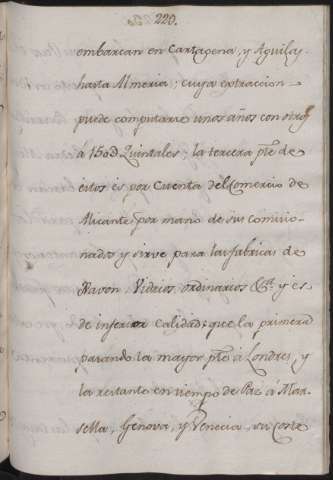 220.
embarcan en Cartagena, y Aguilas,
hasta Almeria; cuya extraccion
puede computarse unos años con otros
à 150d Quintales; la tercera pte de
estos es por Cuenta del Comercio de
Alicante, por mano de sus Comisio-
nados y sirve para las fabricas de
Xavon, Vidrios ordinarios &a y es
de inferior calidad, que la primera
pasando la mayor pte à Londres, y
la restante en tiempo de Paz à Mar-
sella, Genova, y Venecia, su coste